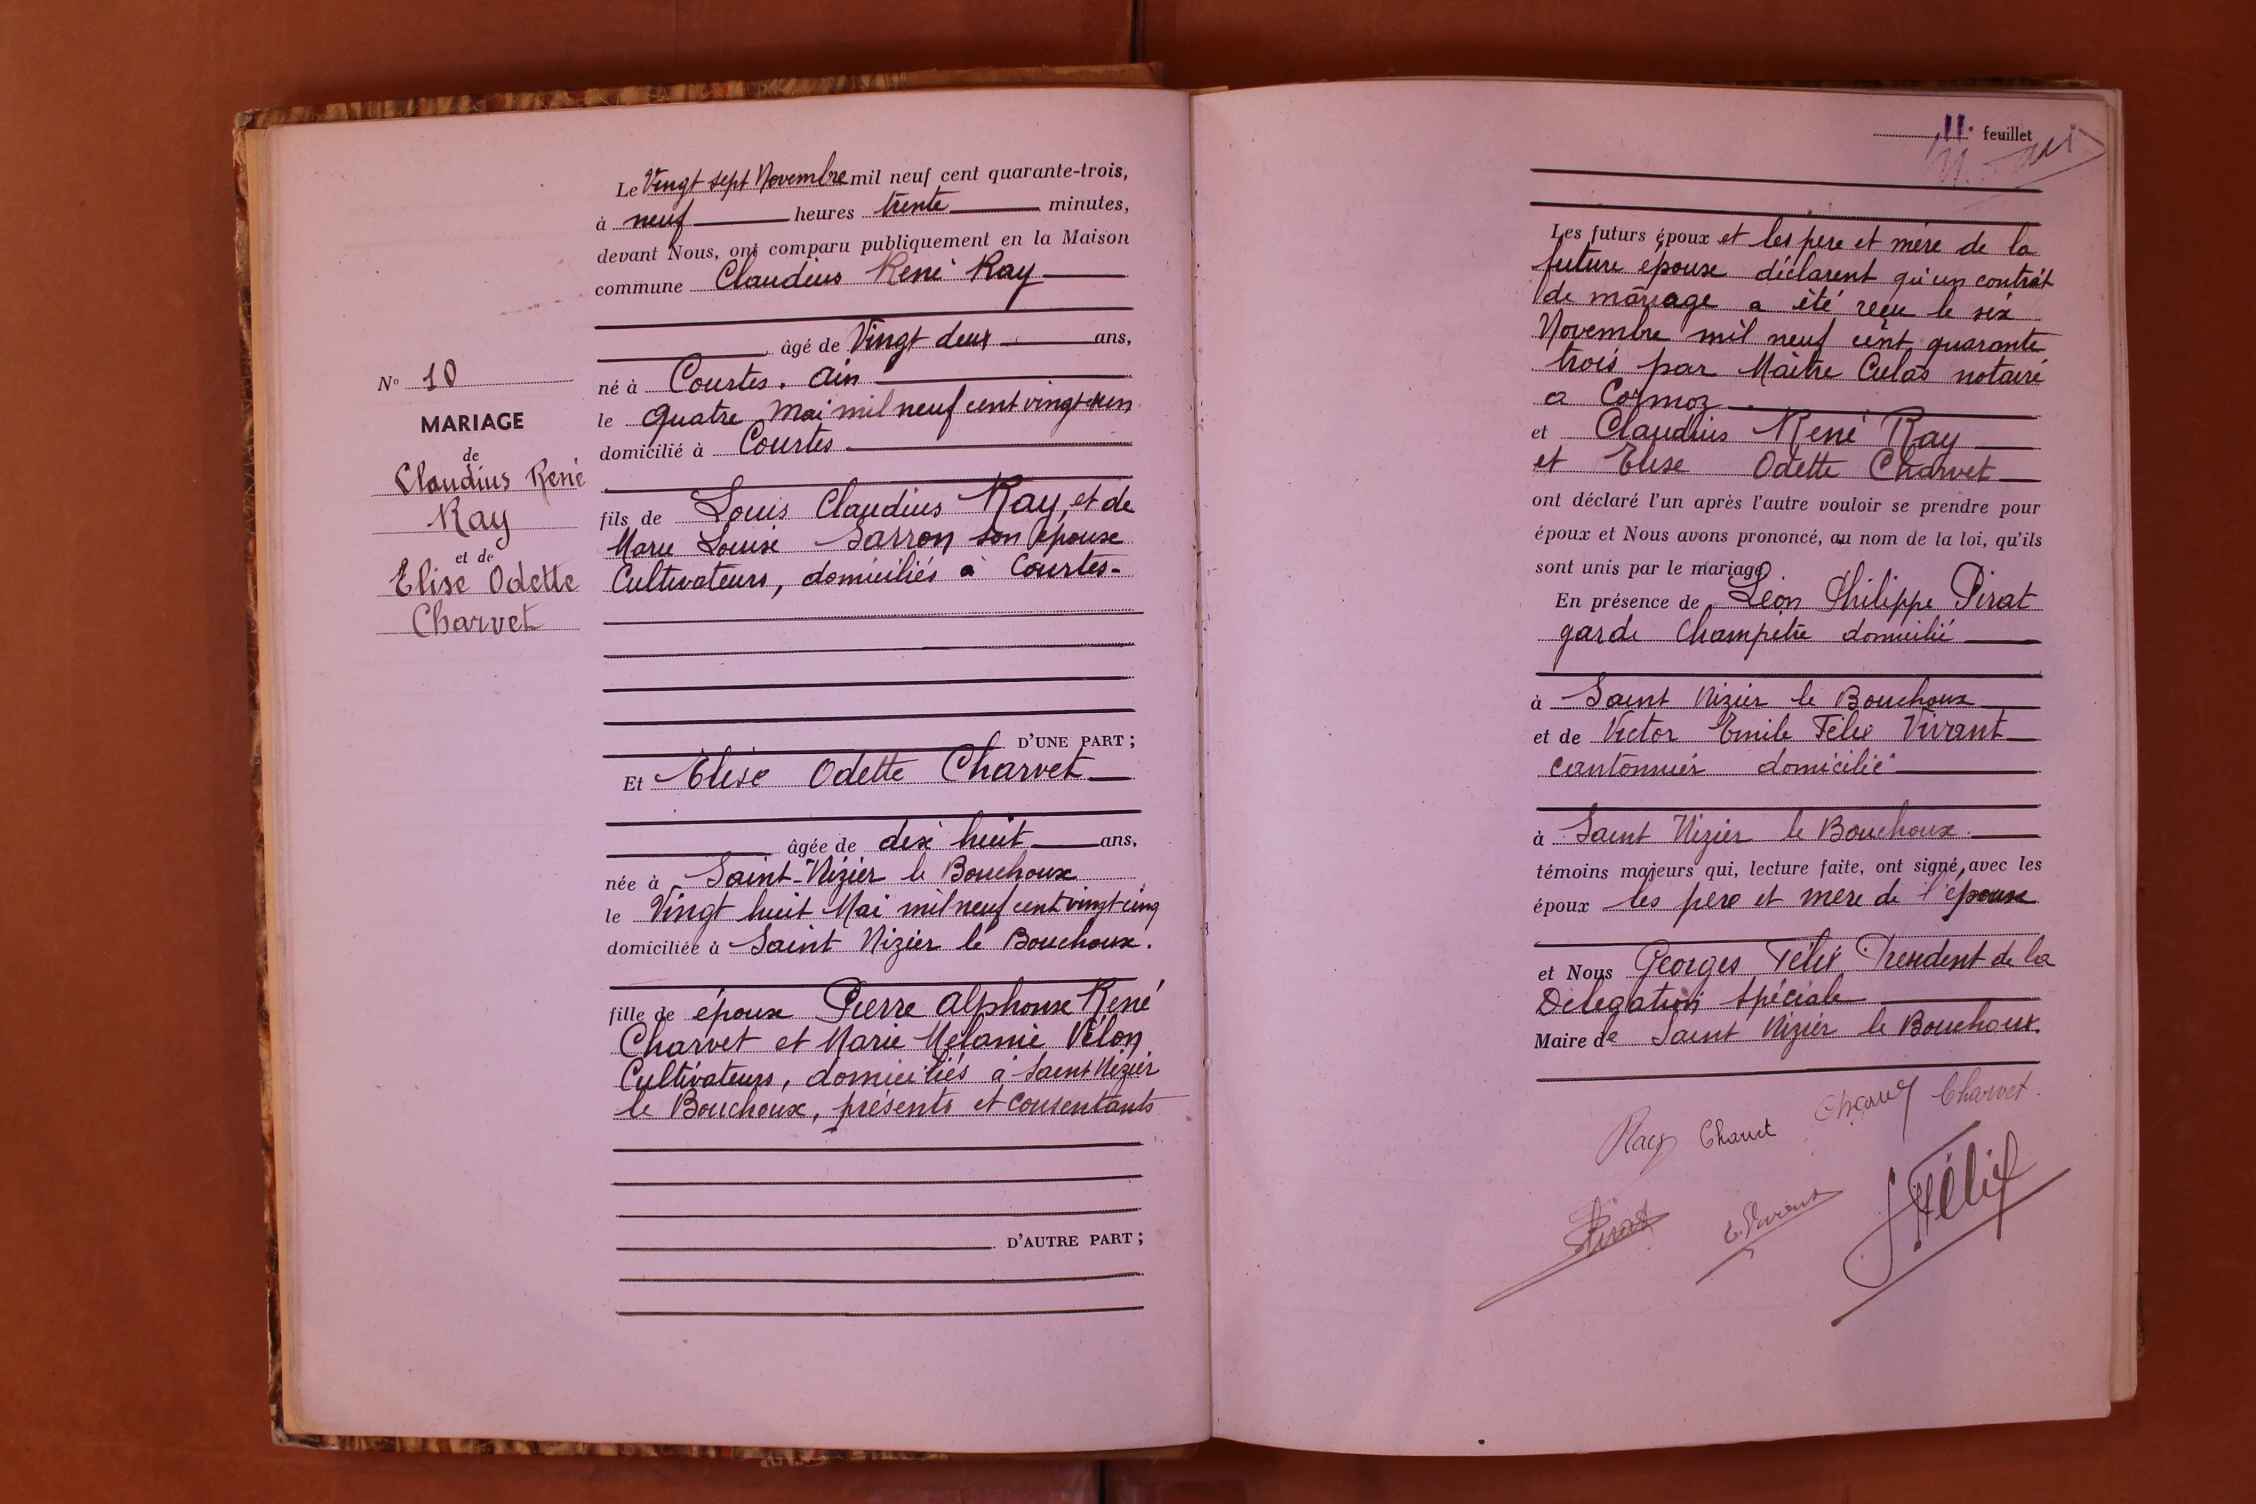 Le Vingt sept Novembre mil neuf cent quarante-trois,
à neuf heures trente minutes,
devant Nous, ont comparu publiquement en la Maison
commune Claudius René Ray
âgé de Vingt deux ans,
né à Courtes. Ain
le quatre Mai mil neuf cent vingt-un
domicilié à Courtes
fils de Louis Claudius Ray, et de
Marie Louise Sarron son épouse
Cultivateurs, domiciliés à Courtes-
D'UNE PART ;
Et Elise Odette Charvet
âgée de dix huit ans,
née à Saint-Nizier le Bouchoux
le Vingt huit Mai mil neuf cent vingt cinq
domiciliée à Saint Nizier le Bouchoux.
fille de époux Pierre Alphonse René
Charvet et Marie Mélanie Vélon
Cultivateurs, domiciliés à Saint Nizier
le Bouchoux, présents et consentants
D'AUTRE PART ;
No 10
MARIAGE
de
Claudius René
Ray
et de
Elise Odette
Charvet
11. feuillet
Les futurs époux et les père et mère de la
future épouse déclarent qu'un contrat
de mariage a été reçu le six
Novembre mil neuf cent quarante
trois par Maître Culas notaire
a Cormoz
et Claudius René Ray
et Elise Odette Charvet
ont déclaré l'un après l'autre vouloir se prendre pour
époux et Nous avons prononcé, au nom de la loi, qu'ils
sont unis par le mariage
En présence de Léon Philippe Pirat
garde Champêtre domicilié
à Saint Nizier le Bouchoux
et de Victor Emile Félix Vivant
cantonnier domicilié
à Saint Nizier le Bouchoux.
témoins majeurs qui, lecture faite, ont signé avec les
époux les pere et mere de l'épouse
et Nous Georges Félix President de la
Délégation Spéciale
Maire de Saint Nizier le Bouchoux.
Ray Charvet Charvet Charvet.
Pirat
Félix